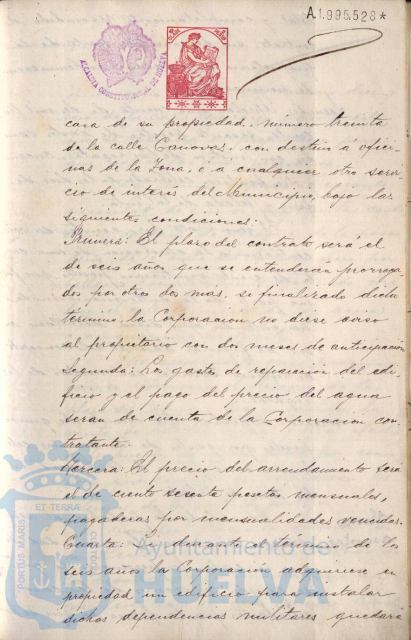 A1.995.528*
ALCALDIA CONSTITUCIONAL DE HUELVA
casa de su propiedad, número treinta
de la calle Canovas, con destino a ofici-
nas de la Zona, o a cualquier otro servi-
cio de interés del Municipio, bajo las
siguientes condiciones.
Primera: El plazo del contrato será el
de seis años que se entenderán prorroga-
dos por otros dos mas, si finalizado dicho
término, la Corporación no diese aviso
al propietario con dos meses de anticipación
Segunda: Los gastos de reparación del edi-
ficio y el pago del precio del agua
seran de cuenta de la Corporacion con-
tratante.
Tercera: El precio del arrendamento será
el de ciento sesenta pesetas mensuales,
pagaderas por mensualidades vencidas.
Cuarta: Si durante el término de los
seis años la Corporación adquiriese en
propiedad un edificio para instalar
dichas dependencias militares quedará
PORTUS MARIS
ET TERRÆ
CUSTODIO
Ayuntamiento de
HUELVA